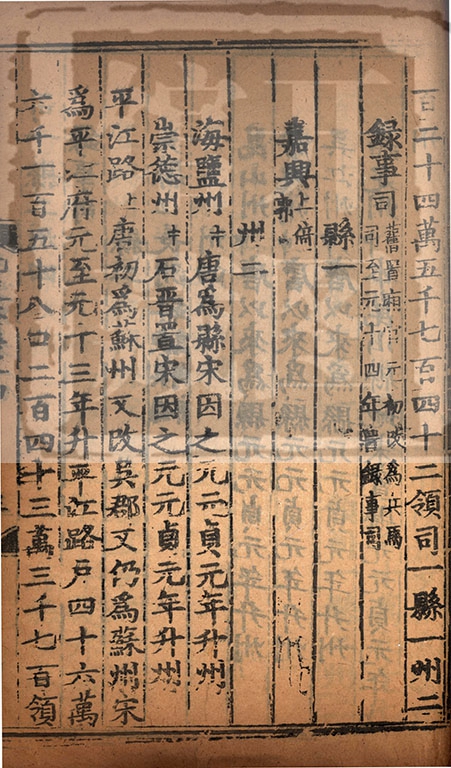 百二十四萬五千七百四十二領司一縣一州二
錄事司舊置廂官元初改為兵馬
司至元十四年置錄事司
縣一
嘉興上倚郭
州二
海鹽州中唐為縣宋因之元元貞元年升州
崇德州中石晉置宋因之元元貞元年升州
平江路上唐初為蘇州又改吳郡又仍為蘇州宋
為平江府元至元十三年升平江路戶四十六萬
六千一百五十八口二百四十三萬三千七百領